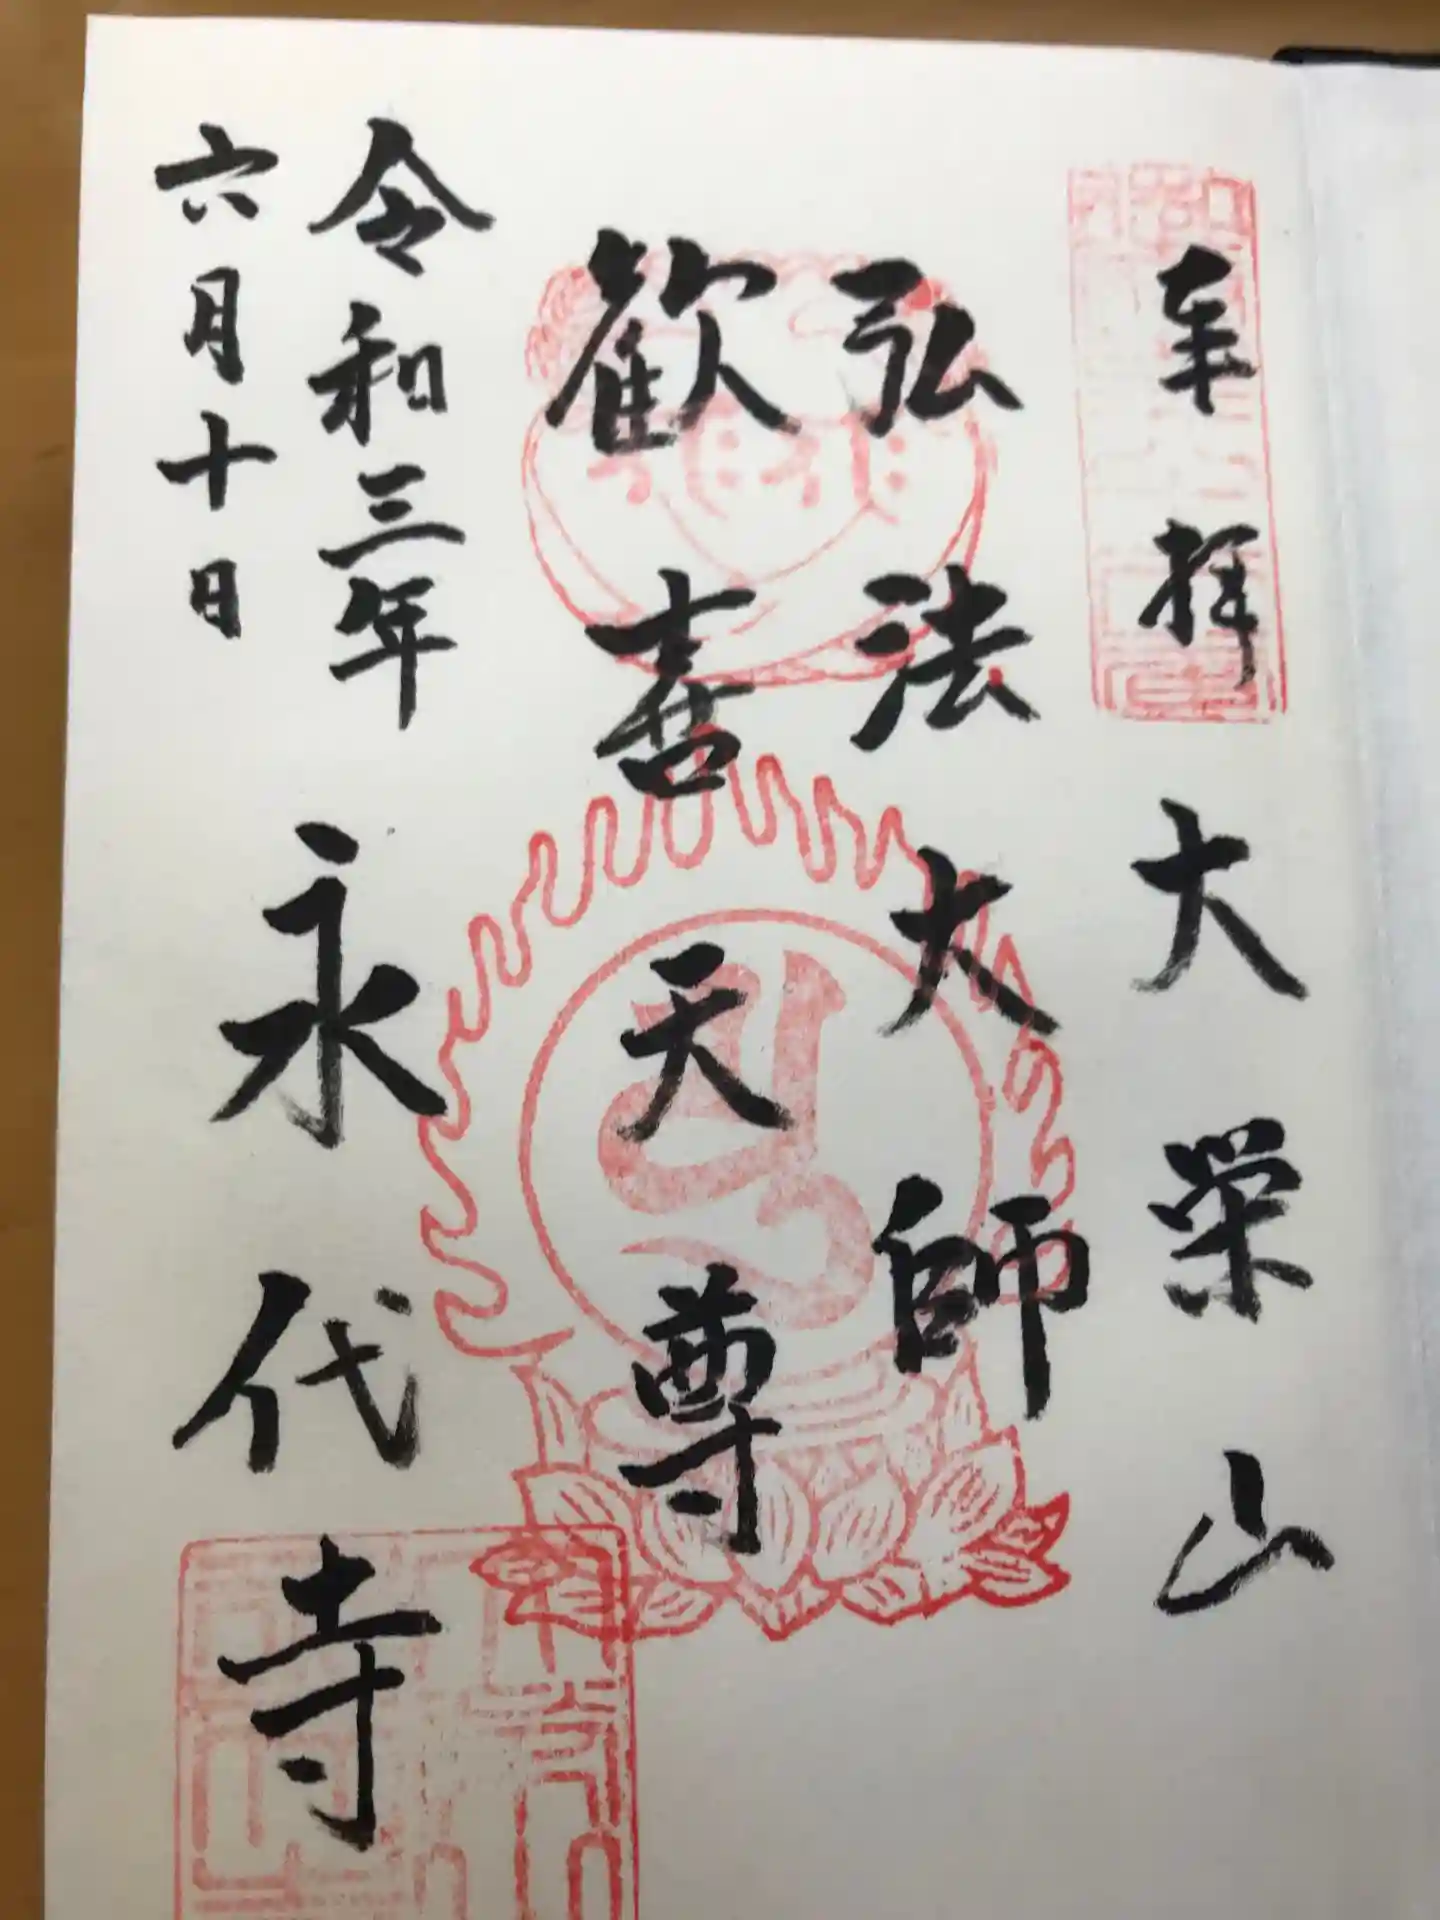 奉拝 大栄山
弘法大師
歓喜天尊
令和三年
六月十日
永代寺